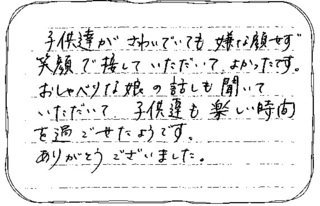 子供達が さわいでいても 嫌な顔せず
笑顔で接していただいて、よかったです。
おしゃべりな娘の話しも聞いて
いただいて 子供達も楽しい時間
を過ごせたようです。
ありがとうございました。